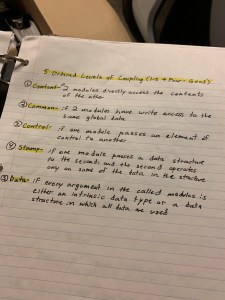 5 Ordered Levels of Coupling (1→5 = Poor → Good)
① Content- 2 modules directly access the contents
of the other
② Common- if 2 modules have write access to the
same global data
③ Control- if one module passes an element of
control to another
④ Stamp- if one module passes a data structure
to the second; and the second operates
only on some of the data in the structure
⑤ Data- if every argument in the called modules is
either an intrinsic data type or a data
structure in which all data are used